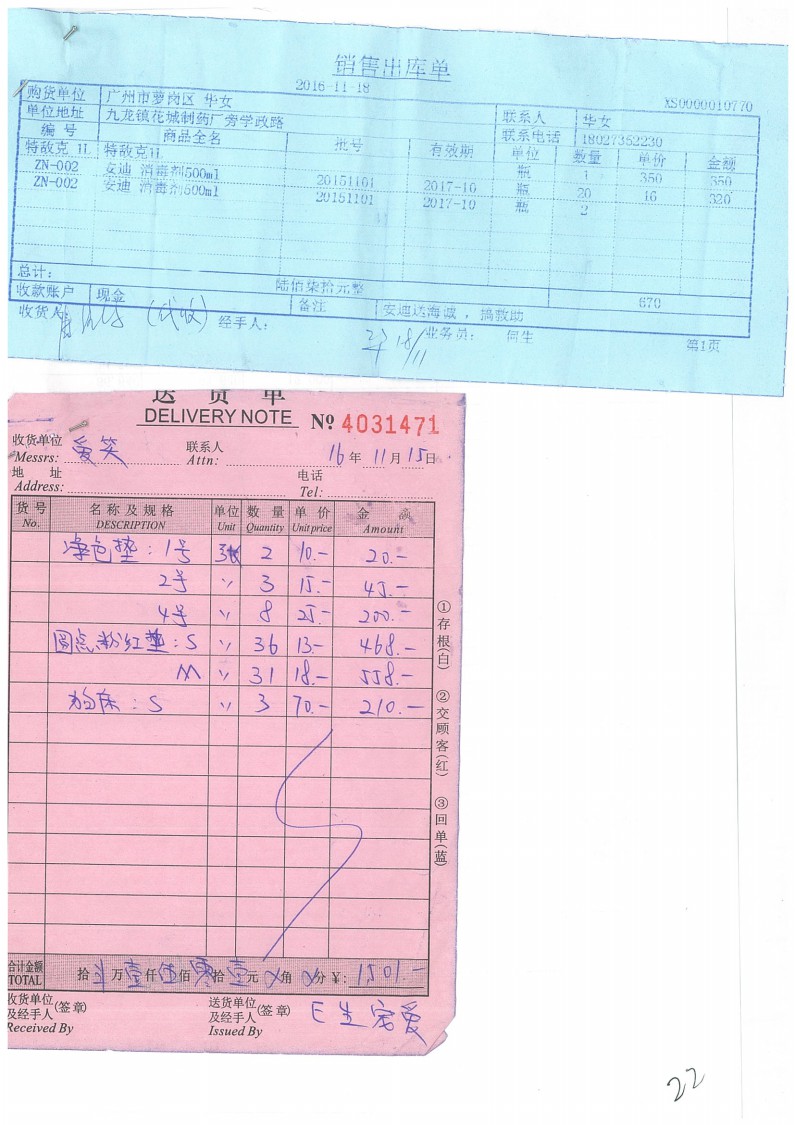 销售出库单
2016-11-18
XS0000010770
购货单位 广州市萝岗区 华女 联系人 华女
单位地址 九龙镇花城制药厂旁学政路 联系电话 18027352230
编 号 商品全名 批号 有效期 单位 数量 单价 金额
特敌克 1L 特敌克1L 瓶 1 350 350
ZN-002 安迪 消毒剂500ml 20151101 2017-10 瓶 20 16 320
ZN-002 安迪 消毒剂500ml 20151101 2017-10 瓶 2
总计： 陆佰柒拾元整 670
收款账户 现金 备注 安迪送海诚，搞救助
收货人： (代收) 经手人： 18/11 业务员： 何生 第1页
送 货 单
DELIVERY NOTE № 4031471
收货单位 爱笑 联系人
Messrs: Attn: 16 年 11 月 15 日
地 址 电话
Address: Tel:
货 号 名 称 及 规 格 单位 数 量 单 价 金 额
No. DESCRIPTION Unit Quantity Unit price Amount
净色垫：1号 张 2 10.- 20.-
2号 〃 3 15.- 45.-
4号 〃 8 25.- 200.-
圆点粉红垫：S 〃 36 13.- 468.-
M 〃 31 18.- 558.-
狗床：S 〃 3 70.- 210.-
①存根(白) ②交顾客(红) ③回单(蓝)
合计金额 拾 万 壹 仟 伍 佰 零 拾 壹 元 角 分 ¥: 1501.-
TOTAL
收货单位 (签章) 送货单位 (签章) 生宠爱
及经手人 及经手人
Received By Issued By
22